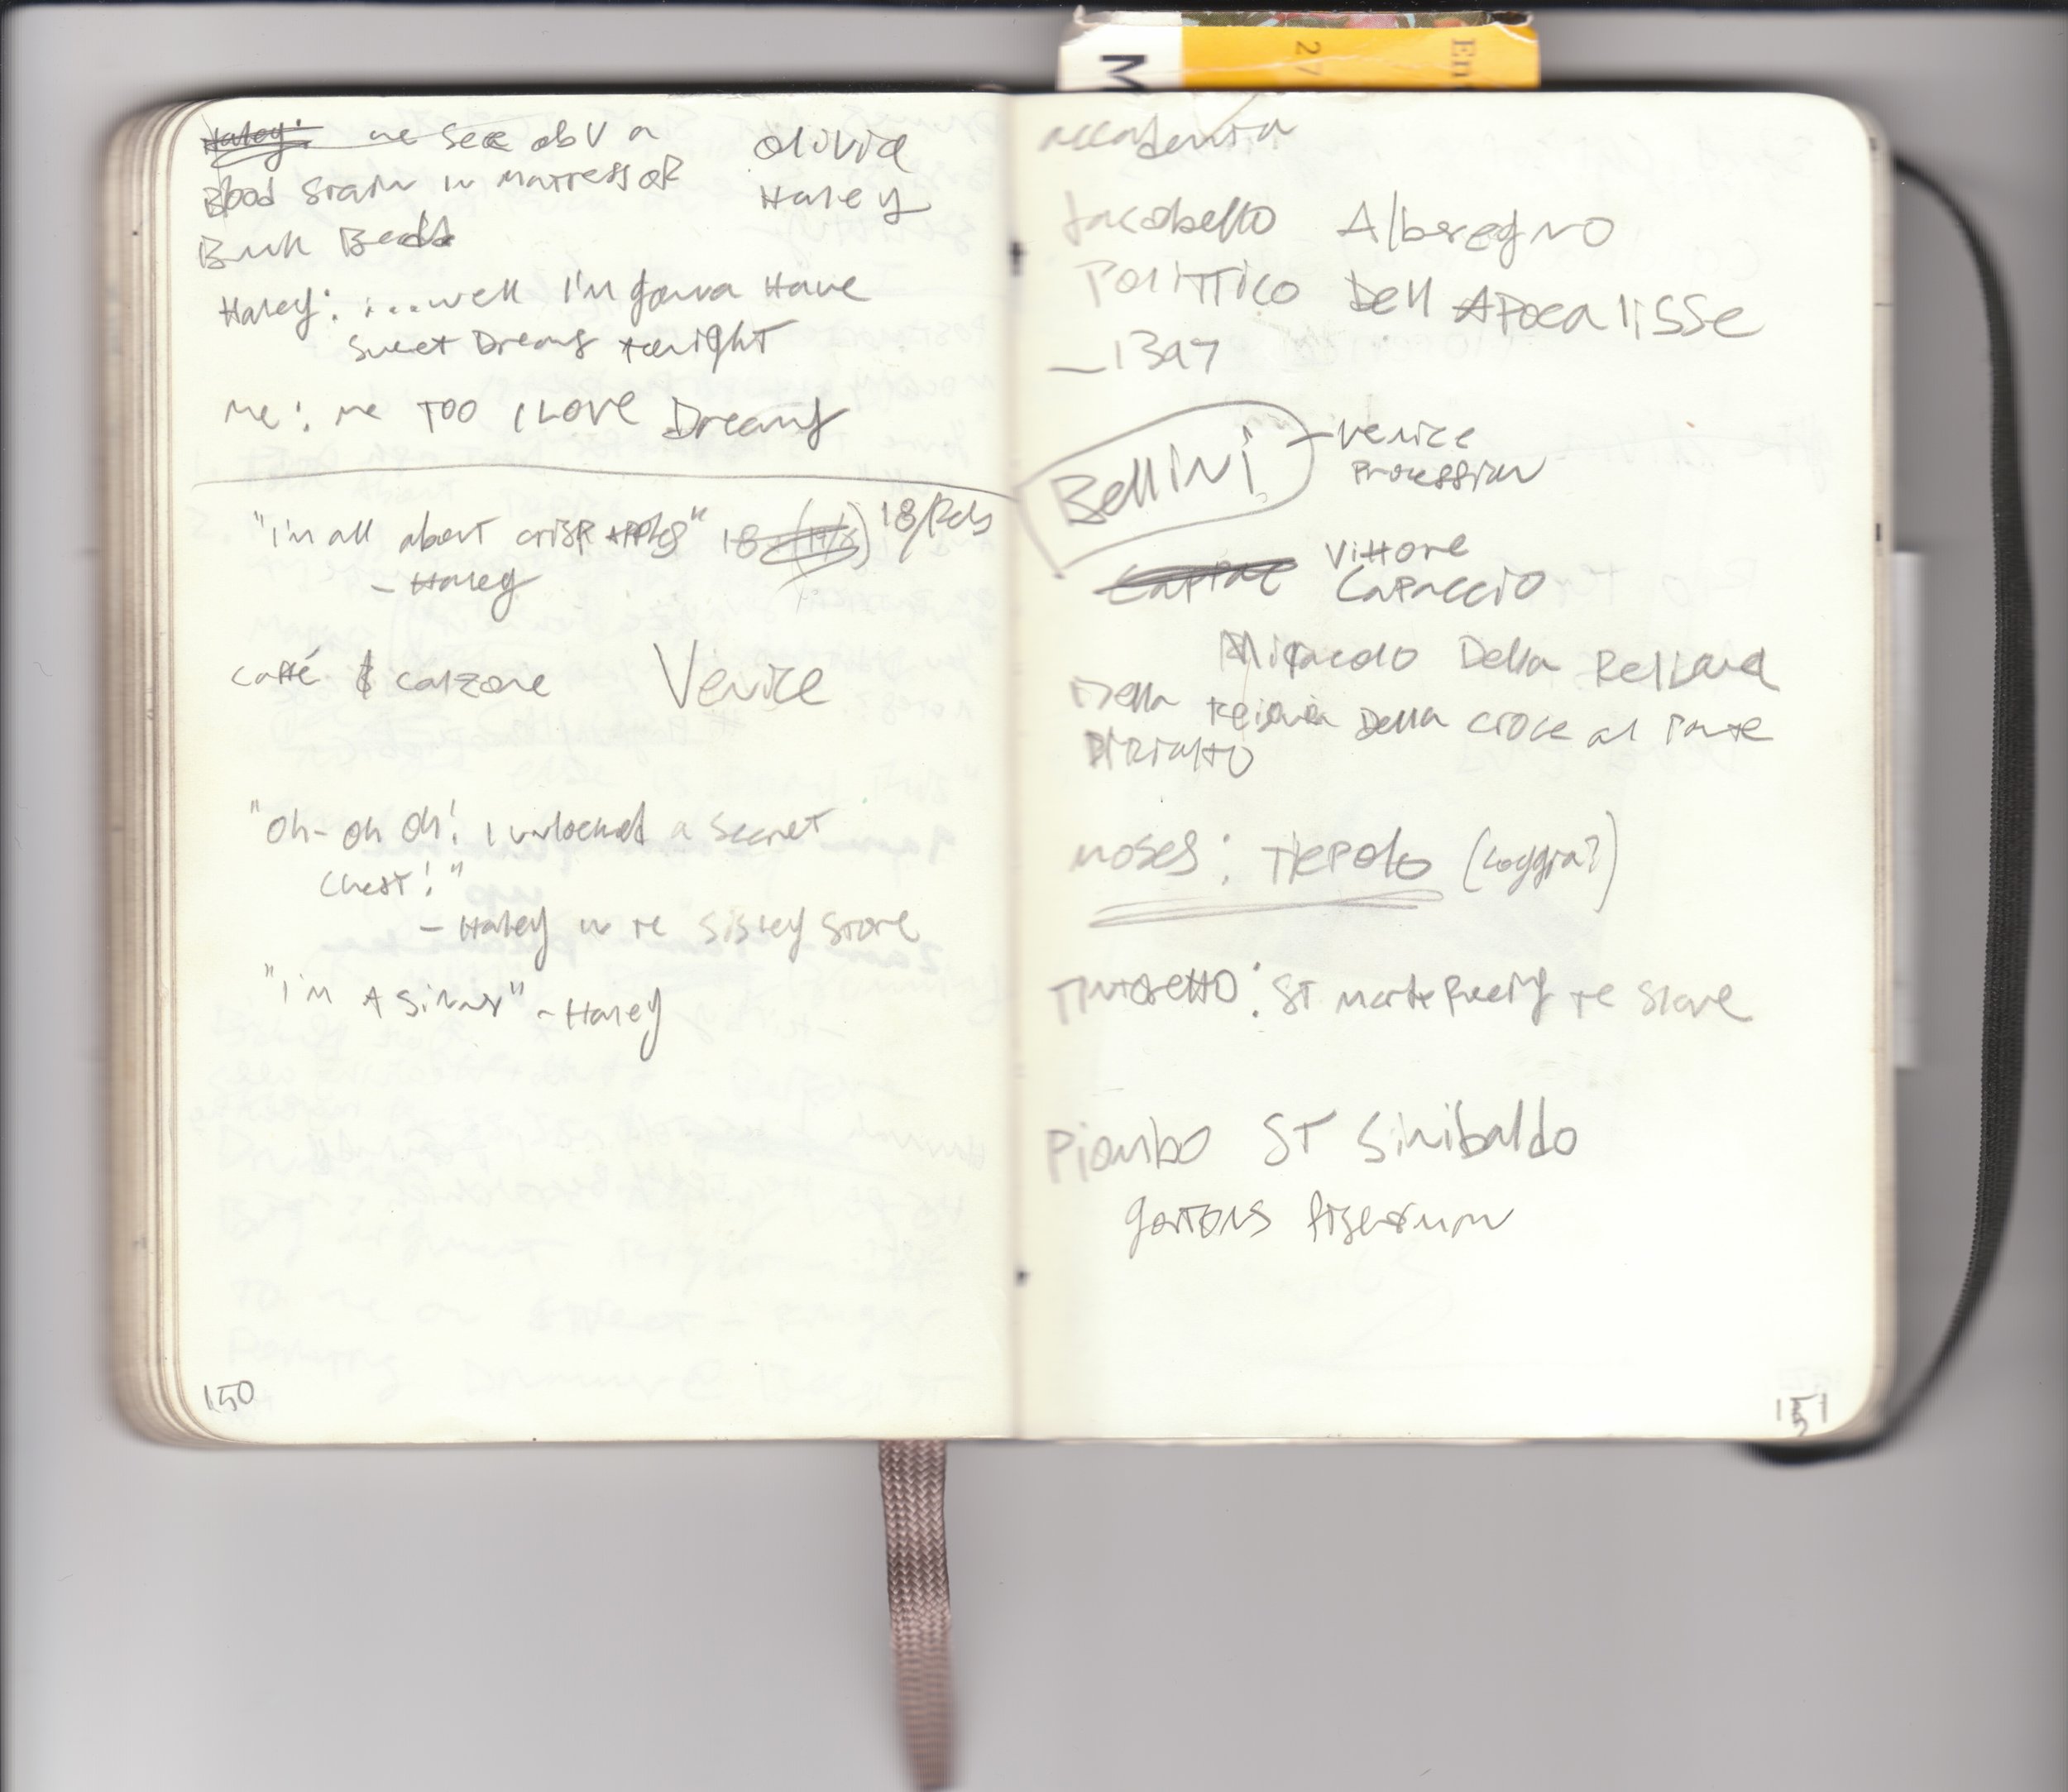 M
27
En
Haley: we see obv a
Blood stain in mattress of
Bunk Beds
Olivia
Haley
Haley: ....well I'm gonna Have
sweet Dreams tonight
me: me TOO I LOVE Dreams
"I'm all about crisp apples" 18 18/Feb
- Haley
caffé & calzone
Venice
"Oh-oh oh! I unlocked a secret
chest!"
- Haley in te Sisley store
"I'm A Sinner" - Haley
150
accademia
Jacobello Alberegno
Polittico Dell Apocalisse
1397
Bellini - Venice
Procession
Vittore
Capaccio
Miracolo Della Reliquia
Della Della croce al Ponte
Di Rialto
moses: Tiepolo (Loggia?)
Tintoretto: ST mark freeing te Slave
Piombo ST Sinibaldo
151